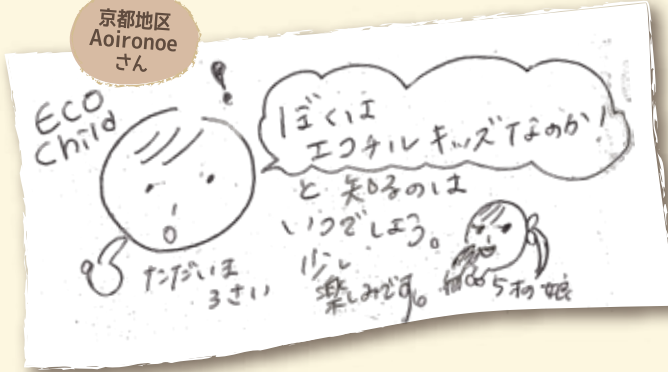 京都地区
Aoironoe
さん
ECO
Child
!
ぼくは
エコチルキッズなのか!
と知るのは
いつでしょう。
少し
楽しみです。
ただいま
3さい
5才の娘